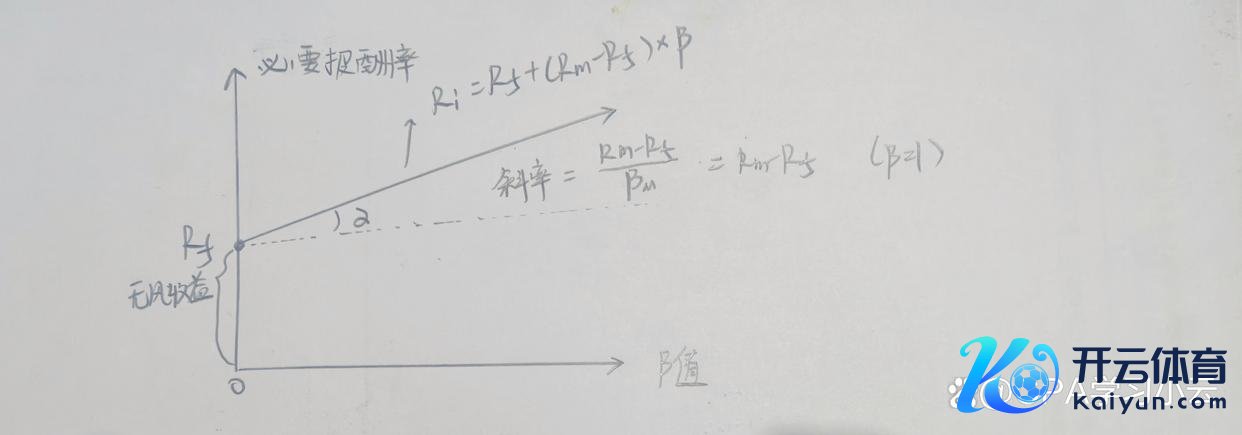 必要报酬率
Ri = Rf + (Rm-Rf) × β
斜率 = (Rm-Rf)/βM = Rm-Rf (β=1)
α
Rf
无风收益
0
β值
开云体育
kaiyun.com